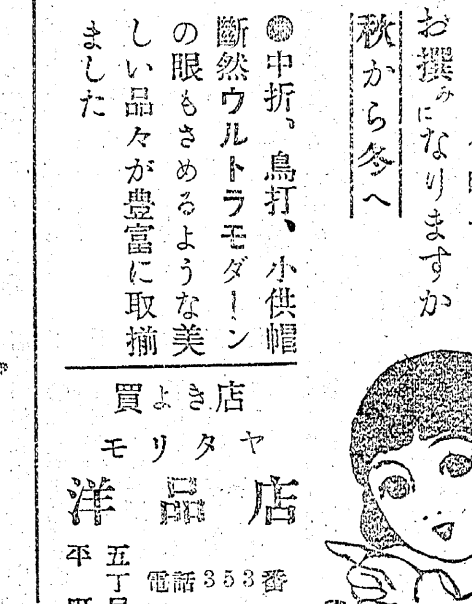 お撰みになりますか
秋から冬へ
◉中折、鳥打、小供帽
斷然ウルトラモダーン
の眼もさめるような美
しい品々が豊富に取揃
ました
買よき店
モリタヤ
洋品店
五丁目
平町
電話353番